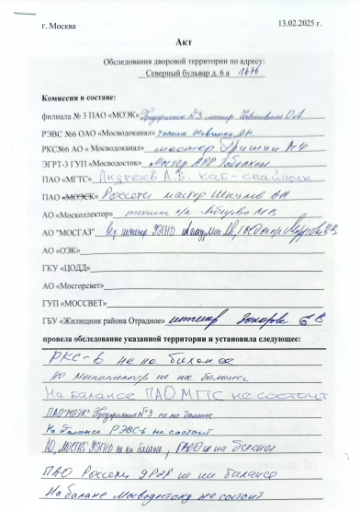 г. Москва 13.02.2025 г.
Акт
Обследования дворовой территории по адресу:
Северный бульвар д. 6 а 1676
Комиссия в составе:
филиала № 3 ПАО «МОЭК» Предприятие №3 мастер
РЭВС №6 ОАО «Мосводоканал» техник
РКС№6 АО « Мосводоканал» мастер
ЭГРТ-3 ГУП «Мосводосток» мастер АРР
ПАО «МГТС» Андреев А.В. каб-спайщик
ПАО «МОЭСК» Россети мастер
АО «Москоллектор» техник
АО "МОСГАЗ" инженер УЭГНО
АО «ОЭК»
ГКУ «ЦОДД»
АО «Мосгорсвет»
ГУП «МОССВЕТ»
ГБУ «Жилищник района Отрадное» инженер Захарова
провела обследование указанной территории и установила следующее:
РКС-6 не на балансе
АО Москоллектор не на балансе
На балансе ПАО МГТС не состоит
ПАО МОЭК Предприятие №3 не на балансе
На балансе РЭВС-6 не состоит
АО, МОСГАЗ УЭГНО не на балансе, не на балансе
ПАО Россети не на балансе
На балансе Мосводосток не состоит